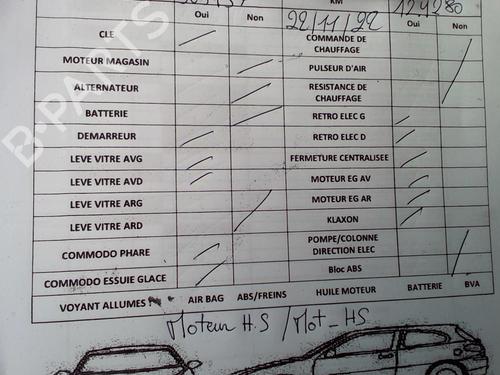 KM
Oui Non 22/11/22 Oui Non
CLE COMMANDE DE CHAUFFAGE
MOTEUR MAGASIN PULSEUR D'AIR
ALTERNATEUR RESISTANCE DE CHAUFFAGE
BATTERIE RETRO ELEC G
DEMARREUR RETRO ELEC D
LEVE VITRE AVG FERMETURE CENTRALISEE
LEVE VITRE AVD MOTEUR EG AV
LEVE VITRE ARG MOTEUR EG AR
LEVE VITRE ARD KLAXON
COMMODO PHARE POMPE/COLONNE DIRECTION ELEC
COMMODO ESSUIE GLACE Bloc ABS
VOYANT ALLUMES AIR BAG ABS/FREINS HUILE MOTEUR BATTERIE BVA
Moteur H.S / Mot_HS
B-PARTS